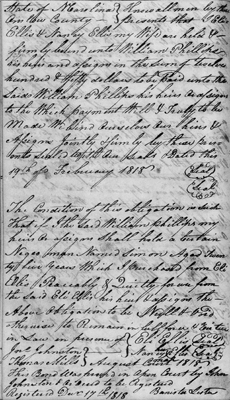 State of No Carolina } Know all men by these
County } presents that I Eli
Ellis & Nancy Ellis my Wife are held &
firmly bound unto William Phillips
his heirs and assigns in the sum of twelve
hundred & fifty dollars to be paid unto the
Said William Phillips his heirs or assigns
to the Which payment Well & Truly to be
Made We bind ourselves our heirs &
Assigns Jointly & firmly by these presents
Sealed With our Seals Dated this
19th of Febuary 1818
Seal
Seal
The Condition of this obligation is Such
that if the Said William Phillips
heirs & assigns shall hold a Certain
Negro man Named Simon Aged Twenty
five Years Which I purchased from Eli
Ellis Peaceably & Quietly
the Said Eli Ellis his heirs & assigns the
Above Obligation to be Null & Void
otherwise to Remain in full force & Virtue
in Law in presence of Eli Ellis Seal
Johnston Nancy Ellis Seal
Thomas August Court 1818
This Bond Was proven in Open Court by John
Johnston & Ordered to be Registered
Registered Decr 17th 1818